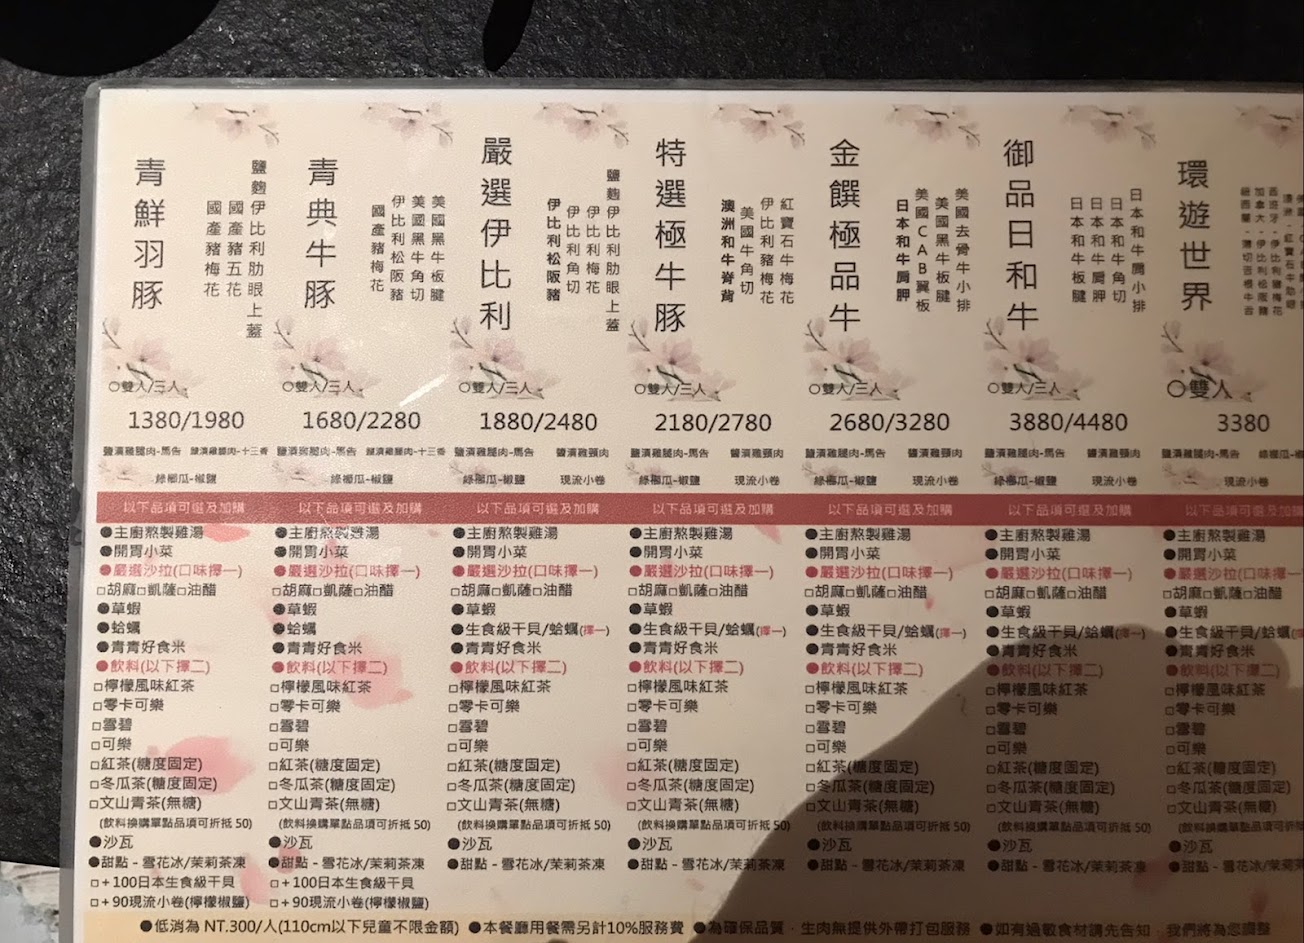 青鮮羽豚
鹽麴伊比利肋眼上蓋
國產豬五花
國產豬梅花
〇雙人/三人
1380/1980
鹽漬雞腿肉-馬告 鹽漬雞腿肉-十三香
綠櫛瓜-椒鹽
以下品項可選及加購
●主廚熬製雞湯
●開胃小菜
●嚴選沙拉(口味擇一)
□胡麻□凱薩□油醋
●草蝦
●蛤蠣
●青青好食米
●飲料(以下擇二)
□檸檬風味紅茶
□零卡可樂
□雪碧
□可樂
□紅茶(糖度固定)
□冬瓜茶(糖度固定)
□文山青茶(無糖)
(飲料換購單點品項可折抵 50)
●沙瓦
●甜點 - 雪花冰/茉莉茶凍
□+100日本生食級干貝
□+90現流小卷(檸檬椒鹽)
青典牛豚
美國黑牛板腱
美國黑牛角切
伊比利松阪豬
國產豬梅花
〇雙人/三人
1680/2280
鹽漬雞腿肉-馬告 鹽漬雞腿肉-十三香
綠櫛瓜-椒鹽
以下品項可選及加購
●主廚熬製雞湯
●開胃小菜
●嚴選沙拉(口味擇一)
□胡麻□凱薩□油醋
●草蝦
●蛤蠣
●青青好食米
●飲料(以下擇二)
□檸檬風味紅茶
□零卡可樂
□雪碧
□可樂
□紅茶(糖度固定)
□冬瓜茶(糖度固定)
□文山青茶(無糖)
(飲料換購單點品項可折抵 50)
●沙瓦
●甜點 - 雪花冰/茉莉茶凍
□+100日本生食級干貝
□+90現流小卷(檸檬椒鹽)
嚴選伊比利
鹽麴伊比利肋眼上蓋
伊比利梅花
伊比利角切
伊比利松阪豬
〇雙人/三人
1880/2480
鹽漬雞腿肉-馬告 鹽漬雞頸肉
綠櫛瓜-椒鹽 現流小卷
以下品項可選及加購
●主廚熬製雞湯
●開胃小菜
●嚴選沙拉(口味擇一)
□胡麻□凱薩□油醋
●草蝦
●生食級干貝/蛤蠣(擇一)
●青青好食米
●飲料(以下擇二)
□檸檬風味紅茶
□零卡可樂
□雪碧
□可樂
□紅茶(糖度固定)
□冬瓜茶(糖度固定)
□文山青茶(無糖)
(飲料換購單點品項可折抵 50)
●沙瓦
●甜點 - 雪花冰/茉莉茶凍
特選極牛豚
紅寶石牛梅花
伊比利豬梅花
美國牛角切
澳洲和牛脊背
〇雙人/三人
2180/2780
鹽漬雞腿肉-馬告 鹽漬雞頸肉
綠櫛瓜-椒鹽 現流小卷
以下品項可選及加購
●主廚熬製雞湯
●開胃小菜
●嚴選沙拉(口味擇一)
□胡麻□凱薩□油醋
●草蝦
●生食級干貝/蛤蠣(擇一)
●青青好食米
●飲料(以下擇二)
□檸檬風味紅茶
□零卡可樂
□雪碧
□可樂
□紅茶(糖度固定)
□冬瓜茶(糖度固定)
□文山青茶(無糖)
(飲料換購單點品項可折抵 50)
●沙瓦
●甜點 - 雪花冰/茉莉茶凍
金饌極品牛
美國去骨牛小排
美國黑牛板腱
美國CAB翼板
日本和牛肩胛
〇雙人/三人
2680/3280
鹽漬雞腿肉-馬告 鹽漬雞頸肉
綠櫛瓜-椒鹽 現流小卷
以下品項可選及加購
●主廚熬製雞湯
●開胃小菜
●嚴選沙拉(口味擇一)
□胡麻□凱薩□油醋
●草蝦
●生食級干貝/蛤蠣(擇一)
●青青好食米
●飲料(以下擇二)
□檸檬風味紅茶
□零卡可樂
□雪碧
□可樂
□紅茶(糖度固定)
□冬瓜茶(糖度固定)
□文山青茶(無糖)
(飲料換購單點品項可折抵 50)
●沙瓦
●甜點 - 雪花冰/茉莉茶凍
御品日和牛
日本和牛腩小排
日本和牛角切
日本和牛肩胛
日本和牛板腱
〇雙人/三人
3880/4480
鹽漬雞腿肉-馬告 鹽漬雞頸肉
綠櫛瓜-椒鹽 現流小卷
以下品項可選及加購
●主廚熬製雞湯
●開胃小菜
●嚴選沙拉(口味擇一)
□胡麻□凱薩□油醋
●草蝦
●生食級干貝/蛤蠣(擇一)
●青青好食米
●飲料(以下擇二)
□檸檬風味紅茶
□零卡可樂
□雪碧
□可樂
□紅茶(糖度固定)
□冬瓜茶(糖度固定)
□文山青茶(無糖)
(飲料換購單點品項可折抵 50)
●沙瓦
●甜點 - 雪花冰/茉莉茶凍
環遊世界
西班牙-伊比利豬梅花
加拿大-伊比利松阪豬
〇雙人
3380
鹽漬雞腿肉-馬告 綠櫛瓜
現流小卷
以下品項可選及加購
●主廚熬製雞湯
●開胃小菜
●嚴選沙拉(口味擇一)
□胡麻□凱薩□油醋
●草蝦
●生食級干貝/蛤蠣(擇
●青青好食米
●飲料(以下擇二)
□檸檬風味紅茶
□零卡可樂
□雪碧
□可樂
□紅茶(糖度固定)
□冬瓜茶(糖度固定)
□文山青茶(無糖)
(飲料換購單點品項可折抵
●沙瓦
●甜點 - 雪花冰/茉莉茶
●低消為 NT.300/人(110cm以下兒童不限金額) ●本餐廳用餐需另計10%服務費 ●為確保品質,生肉無提供外帶打包服務 ●如有過敏食材請先告知,我們將為您調整